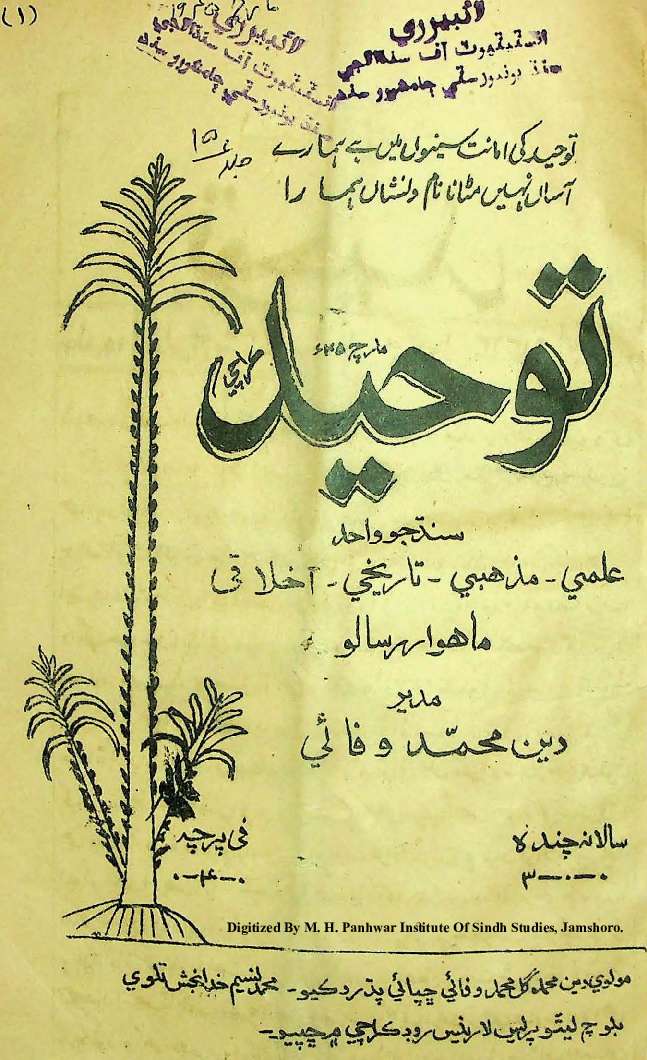 (۱)
لائبريري
انسٽيٽيوٽ آف سنڌالاجي
سنڌ يونيورسٽي ڄامشورو سنڌ
لائبريري
انسٽيٽيوٽ آف سنڌالاجي
سنڌ يونيورسٽي ڄامشورو سنڌ
جلد ۱۵
توحید کی امانت سینوں میں ہے ہمارے
آساں نہیں مٹانا نام و نشاں ہمارا
توحيد
مارچ ۴۵ء
ڪراچي
سنڌ جو واحد
علمي - مذهبي - تاريخي - اخلاقي
ماهوار رسالو
مدير
دين محمّد وفائي
سالانه چنده
۳-۰-۰
في پرچه
۰-۴-۰
Digitized By M. H. Panhwar Institute Of Sindh Studies, Jamshoro.
مولوي دين محمد گل محمد وفائي ڇپائي پڌرو ڪيو - محمد نسيم خدابخش تلوي
بلوچ ليٿو پريس لارينس روڊ ڪراچي ۾ ڇپيو -